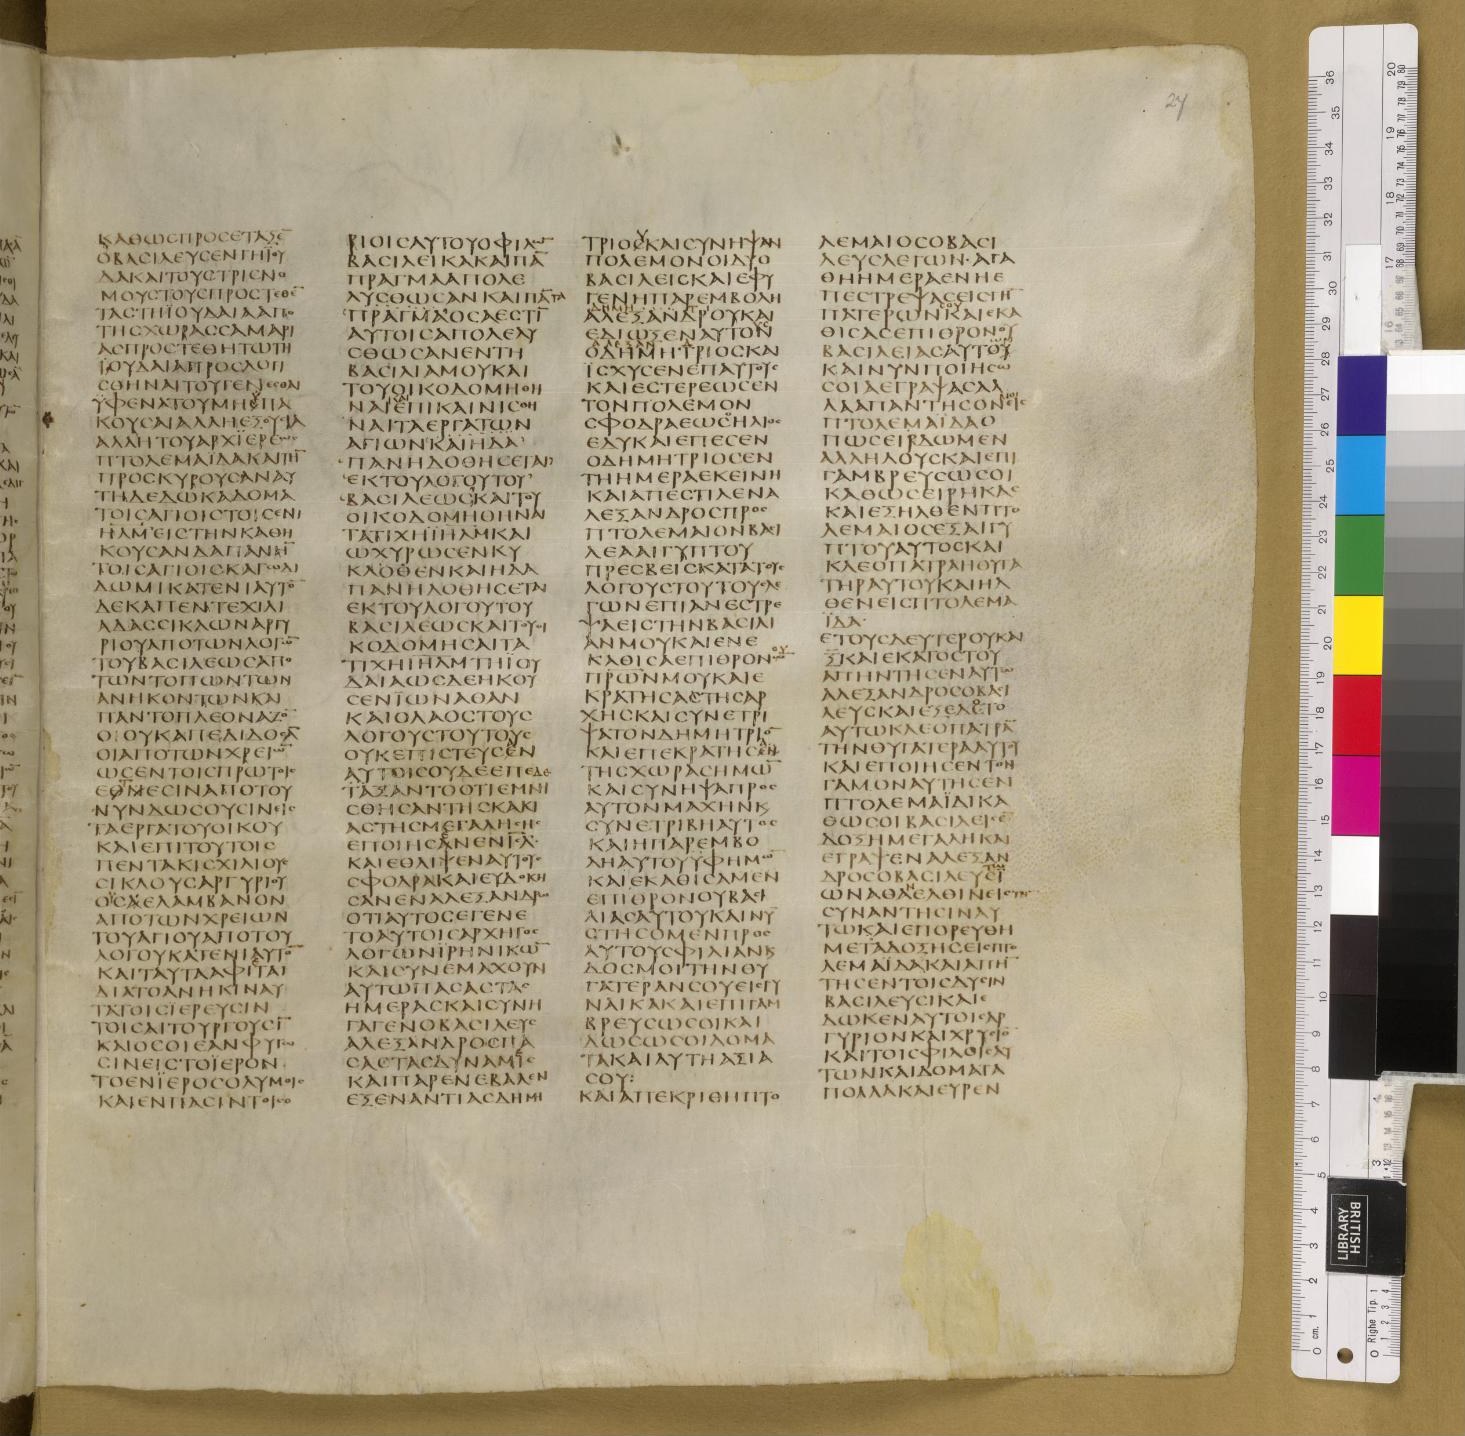 ΚΑΘΩΣΠΡΟΣΕΤΑΞΕ̅
ΟΒΑΣΙΛΕΥΣΕΝΓΗΪΟΥ
ΔΑΚΑΙΤΟΥΣΤΡΙΣΝΟ
ΜΟΥΣΤΟΥΣΠΡΟΣΤΕΘΕ̅
ΤΑΣΤΗΪΟΥΔΑΙΑΑΠΟ
ΤΗΣΧΩΡΑΣΣΑΜΑΡΙ
ΑΣΠΡΟΣΤΕΘΗΤΩΤΗ
ΪΟΥΔΑΙΑΠΡΟΣΛΟΓΙ
ΣΘΗΝΑΙΤΟΥΓΕΝΕΣΘΑΙ
ΫΦΕΝΑΤΟΥΜΗΫΠΑ
ΚΟΥΣΑΙΑΛΛΗΕΞΟΥΣΙΑ
ΑΛΛΗΤΟΥΑΡΧΙΕΡΕΩΣ
ΠΤΟΛΕΜΑΪΔΑΚΑΙΤΗ̅
ΠΡΟΣΚΥΡΟΥΣΑΝΑΥ
ΤΗΔΕΔΩΚΑΔΟΜΑ
ΤΟΙΣΑΓΙΟΙΣΤΟΙΣΕΝΙ
ΗΛΜΕΙΣΤΗΝΚΑΘΗ
ΚΟΥΣΑΝΔΑΠΑΝΗ̅
ΤΟΙΣΑΓΙΟΙΣΚΑΓΩΔΙ
ΔΩΜΙΚΑΤΕΝΙΑΥΤΟ̅
ΔΕΚΑΠΕΝΤΕΧΙΛΙ
ΑΔΑΣΣΙΚΛΩΝΑΡΓΥ
ΡΙΟΥΑΠΟΤΩΝΛΟΓΩ̅
ΤΟΥΒΑΣΙΛΕΩΣΑΠΟ
ΤΩΝΤΟΠΩΝΤΩΝ
ΑΝΗΚΟΝΤΩΝΚΑΙ
ΠΑΝΤΟΠΛΕΟΝΑΖΟ̅
ΟΟΥΚΑΠΕΔΙΔΟΣΑ̅
ΟΙΑΠΟΤΩΝΧΡΕΙΩ̅
ΩΣΕΝΤΟΙΣΠΡΩΤΟΙΣ
ΕΘΝΕΣΙΝΑΠΟΤΟΥ
ΝΥΝΔΩΣΟΥΣΙΝΕΙΣ
ΤΑΕΡΓΑΤΟΥΟΙΚΟΥ
ΚΑΙΕΠΙΤΟΥΤΟΙΣ
ΠΕΝΤΑΚΙΣΧΙΛΙΟΥΣ
ΣΙΚΛΟΥΣΑΡΓΥΡΙΟΥ
ΟΥΣΕΛΑΜΒΑΝΟΝ
ΑΠΟΤΩΝΧΡΕΙΩΝ
ΤΟΥΑΓΙΟΥΑΠΟΤΟΥ
ΛΟΓΟΥΚΑΤΕΝΙΑΥΤΟ̅
ΚΑΙΤΑΥΤΑΑΦΙΤΑΙ
ΔΙΑΤΟΑΝΗΚΙΝΑΥ
ΤΑΤΟΙΣΪΕΡΕΥΣΙΝ
ΤΟΙΣΛΙΤΟΥΡΓΟΥΣΙ̅
ΚΑΙΟΣΟΙΕΑΝΦΥΓΩ
ΣΙΝΕΙΣΤΟΪΕΡΟΝ
ΤΟΕΝΪΕΡΟΣΟΛΥΜΟΙΣ
ΚΑΙΕΝΠΑΣΙΝΤΟΙΣΟ
ΡΙΟΙΣΑΥΤΟΥΟΦΙΛΩ̅
ΒΑΣΙΛΕΙΚΑΚΑΙΠΑ̅
ΠΡΑΓΜΑΑΠΟΛΕ
ΛΥΣΘΩΣΑΝΚΑΙΠΑ̅ΤΑ
ΠΡΑΓΜΑΟΣΑΕΣΤΙ̅
ΑΥΤΟΙΣΑΠΟΛΕΛΥ
ΣΘΩΣΑΝΕΝΤΗ
ΒΑΣΙΛΙΑΜΟΥΚΑΙ
ΤΟΥΟΙΚΟΔΟΜΗΘΗ
ΝΑΙΕΠΙΚΑΙΝΙΣΘΗ
ΝΑΙΤΑΕΡΓΑΤΩΝ
ΑΓΙΩΝΚΑΙΗΔΑ
ΠΑΝΗΔΟΘΗΣΕΤΑΙ
ΕΚΤΟΥΛΟΓΟΥΤΟΥ
ΒΑΣΙΛΕΩΣΚΑΙΤΟΥ
ΟΙΚΟΔΟΜΗΘΗΝΑΙ
ΤΑΤΙΧΗΪΗΛΜΚΑΙ
ΩΧΥΡΩΣΕΝΚΥ
ΚΛΟΘΕΝΚΑΙΗΔΑ
ΠΑΝΗΔΟΘΗΣΕΤΑΙ
ΕΚΤΟΥΛΟΓΟΥΤΟΥ
ΒΑΣΙΛΕΩΣΚΑΙΤΟΥΟΙ
ΚΟΔΟΜΗΣΑΙΤΑ
ΤΙΧΗΪΗΛΜΤΗΪΟΥ
ΔΑΙΑΩΣΔΕΗΚΟΥ
ΣΕΝΪΩΝΑΘΑΝ
ΚΑΙΟΛΑΟΣΤΟΥΣ
ΛΟΓΟΥΣΤΟΥΤΟΥΣ
ΟΥΚΕΠΙΣΤΕΥΣΕΝ
ΑΥΤΟΙΣΟΥΔΕΕΠΕΔΕ
ΤΑΞΑΝΤΟΟΤΙΕΜΝΗ
ΣΘΗΣΑΝΤΗΣΚΑΚΙ
ΑΣΤΗΣΜΕΓΑΛΗΣΗΣ
ΕΠΟΙΗΣΑΝΕΝΪΣΛ
ΚΑΙΕΘΛΙΨΕΝΑΥΤΟΥΣ
ΣΦΟΔΡΑΚΑΙΕΥΔΟΚΗ
ΣΑΝΕΝΑΛΕΞΑΝΔΡΩ
ΟΤΙΑΥΤΟΣΕΓΕΝΕ
ΤΟΑΥΤΟΙΣΑΡΧΗΓΟΣ
ΛΟΓΩΝΙΡΗΝΙΚΩ̅
ΚΑΙΣΥΝΕΜΑΧΟΥΝ
ΑΥΤΩΠΑΣΑΣΤΑΣ
ΗΜΕΡΑΣΚΑΙΣΥΝΗ
ΓΑΓΕΝΟΒΑΣΙΛΕΥΣ
ΑΛΕΞΑΝΔΡΟΣΠΑ
ΣΑΣΤΑΣΔΥΝΑΜΙΣ
ΚΑΙΠΑΡΕΝΕΒΑΛΕΝ
ΕΞΕΝΑΝΤΙΑΣΔΗΜΗ
ΤΡΙΟΥΚΑΙΣΥΝΗΨΑΝ
ΠΟΛΕΜΟΝΟΙΔΥΟ
ΒΑΣΙΛΕΙΣΚΑΙΕΦΥ
ΓΕΝΗΠΑΡΕΜΒΟΛΗ
ΑΛΕΞΑΝΔΡΟΥΚΑΙ
ΕΔΙΩΞΕΝΑΥΤΟΝ
ΟΔΗΜΗΤΡΙΟΣΚΑΙ
ΙΣΧΥΣΕΝΕΠΑΥΤΟΥΣ
ΚΑΙΕΣΤΕΡΕΩΣΕΝ
ΤΟΝΠΟΛΕΜΟΝ
ΣΦΟΔΡΑΕΩΣΟΗΛΙΟΣ
ΕΔΥΚΑΙΕΠΕΣΕΝ
ΟΔΗΜΗΤΡΙΟΣΕΝ
ΤΗΗΜΕΡΑΕΚΕΙΝΗ
ΚΑΙΑΠΕΣΤΙΛΕΝΑ
ΛΕΞΑΝΔΡΟΣΠΡΟΣ
ΠΤΟΛΕΜΑΙΟΝΒΑΣΙ
ΛΕΑΑΙΓΥΠΤΟΥ
ΠΡΕΣΒΕΙΣΚΑΤΑΤΟΥΣ
ΛΟΓΟΥΣΤΟΥΤΟΥΣΛΕ
ΓΩΝΕΠΙΑΝΕΣΤΡΕ
ΨΑΕΙΣΤΗΝΒΑΣΙΛΙ
ΑΝΜΟΥΚΑΙΕΝΕ
ΚΑΘΙΣΑΕΠΙΘΡΟΝΟΥ
ΠΡΩ̅ΝΜΟΥΚΑΙΕ
ΚΡΑΤΗΣΑΣΤΗΣΑΡ
ΧΗΣΚΑΙΣΥΝΕΤΡΙ
ΨΑΤΟΝΔΗΜΗΤΡΙΟ̅
ΚΑΙΕΠΕΚΡΑΤΗΣΕΝ
ΤΗΣΧΩΡΑΣΗΜΩ̅
ΚΑΙΣΥΝΗΨΑΠΡΟΣ
ΑΥΤΟΝΜΑΧΗΝΚ
ΣΥΝΕΤΡΙΒΗΑΥΤΟΣ
ΚΑΙΗΠΑΡΕΜΒΟ
ΛΗΑΥΤΟΥΫΦΗΜΩ̅
ΚΑΙΕΚΑΘΙΣΑΜΕΝ
ΕΠΙΘΡΟΝΟΥΒΑΣΙ
ΛΙΑΣΑΥΤΟΥΚΑΙΝΥ̅
ΣΤΗΣΟΜΕΝΠΡΟΣ
ΑΥΤΟΥΣΦΙΛΙΑΝΚ
ΔΟΣΜΟΙΤΗΝΘΥ
ΓΑΤΕΡΑΝΣΟΥΕΙΣΓΥ
ΝΑΙΚΑΚΑΙΕΠΙΓΑΜ
ΒΡΕΥΣΩΣΟΙΚΑΙ
ΔΩΣΩΣΟΙΔΟΜΑ
ΤΑΚΑΙΑΥΤΗΑΞΙΑ
ΣΟΥ:
ΚΑΙΑΠΕΚΡΙΘΗΠΤΟ
ΛΕΜΑΙΟΣΟΒΑΣΙ
ΛΕΥΣΛΕΓΩΝ·ΑΓΑ
ΘΗΗΜΕΡΑΕΝΗΕ
ΠΕΣΤΡΕΨΑΣΕΙΣΓΗ̅
ΠΑΤΕΡΩΝΚΑΙΕΚΑ
ΘΙΣΑΣΕΠΙΘΡΟΝΟΥ
ΒΑΣΙΛΕΙΑΣΑΥΤΟΥ
ΚΑΙΝΥΝΠΟΙΗΣΩ
ΣΟΙΑΕΓΡΑΨΑΣΑΛ
ΛΑΑΠΑΝΤΗΣΟΝΕΙΣ
ΠΤΟΛΕΜΑΪΔΑΟ
ΠΩΣΕΙΔΩΜΕΝ
ΑΛΛΗΛΟΥΣΚΑΙΕΠΙ
ΓΑΜΒΡΕΥΣΩΣΟΙ
ΚΑΘΩΣΕΙΡΗΚΑΣ
ΚΑΙΕΞΗΛΘΕΝΠΤΟ
ΛΕΜΑΙΟΣΕΞΑΙΓΥ
ΠΤΟΥΑΥΤΟΣΚΑΙ
ΚΛΕΟΠΑΤΡΑΗΘΥΓΑ
ΤΗΡΑΥΤΟΥΚΑΙΗΛ
ΘΕΝΕΙΣΠΤΟΛΕΜΑ
ΪΔΑ·
ΕΤΟΥΣΔΕΥΤΕΡΟΥΚΑΙ
ΞΚΑΙΕΚΑΤΟΣΤΟΥ
ΑΠΗΝΤΗΣΕΝΑΥΤΩ
ΑΛΕΞΑΝΔΡΟΣΟΒΑΣΙ
ΛΕΥΣΚΑΙΕΞΕΔΕΤΟ
ΑΥΤΩΚΛΕΟΠΑΤΡΑ̅
ΤΗΝΘΥΓΑΤΕΡΑΑΥΤΟΥ
ΚΑΙΕΠΟΙΗΣΕΝΤΟΝ
ΓΑΜΟΝΑΥΤΗΣΕΝ
ΠΤΟΛΕΜΑΪΔΙΚΑ
ΘΩΣΟΙΒΑΣΙΛΕΙΣΕ̅
ΔΟΞΗΜΕΓΑΛΗΚΑΙ
ΕΓΡΑΨΕΝΑΛΕΞΑΝ
ΔΡΟΣΟΒΑΣΙΛΕΥΣΪ
ΩΝΑΘΑΕΛΘΙΝΕΙΣ
ΣΥΝΑΝΤΗΣΙΝΑΥ
ΤΩΚΑΙΕΠΟΡΕΥΘΗ
ΜΕΤΑΔΟΞΗΣΕΙΣΠΤΟ
ΛΕΜΑΪΔΑΚΑΙΑΠΗ̅
ΤΗΣΕΝΤΟΙΣΔΥΣΙΝ
ΒΑΣΙΛΕΥΣΙΚΑΙΕ
ΔΩΚΕΝΑΥΤΟΙΣΑΡ
ΓΥΡΙΟΝΚΑΙΧΡΥΣΙΟ̅
ΚΑΙΤΟΙΣΦΙΛΟΙΣΑΥ
ΤΩΝΚΑΙΔΟΜΑΤΑ
ΠΟΛΛΑΚΑΙΕΥΡΕΝ
27
BRITISH
LIBRARY